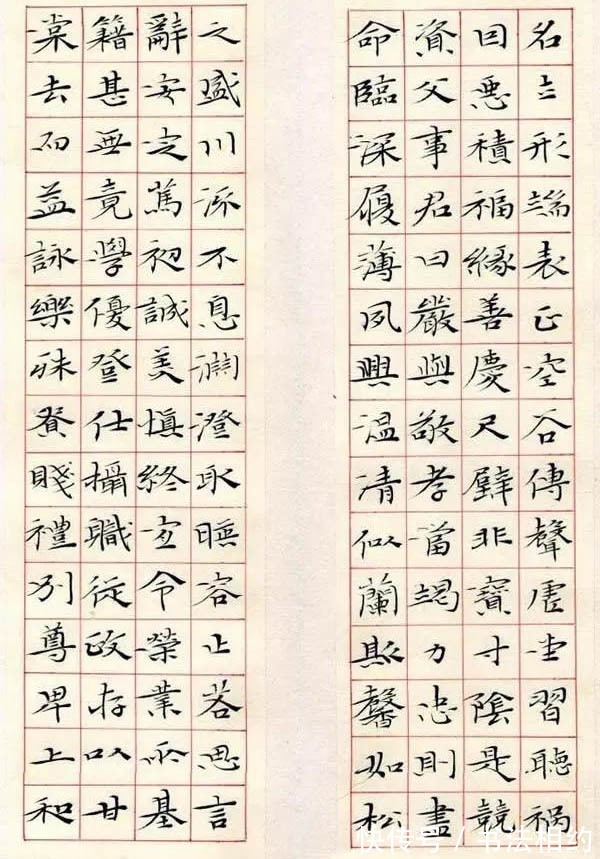 名立形端表正空谷傳聲虛堂習聽禍
因惡積福緣善慶尺璧非寶寸陰是競
資父事君曰嚴與敬孝當竭力忠則盡
命臨深履薄夙興温清似蘭斯馨如松
之盛川流不息淵澄取暎容止若思言
辭安定篤初誠美慎終宜令榮業所基
籍甚無竟學優登仕攝職從政存以甘
棠去而益詠樂殊貴賤禮別尊卑上和
快传号 / 书法相约